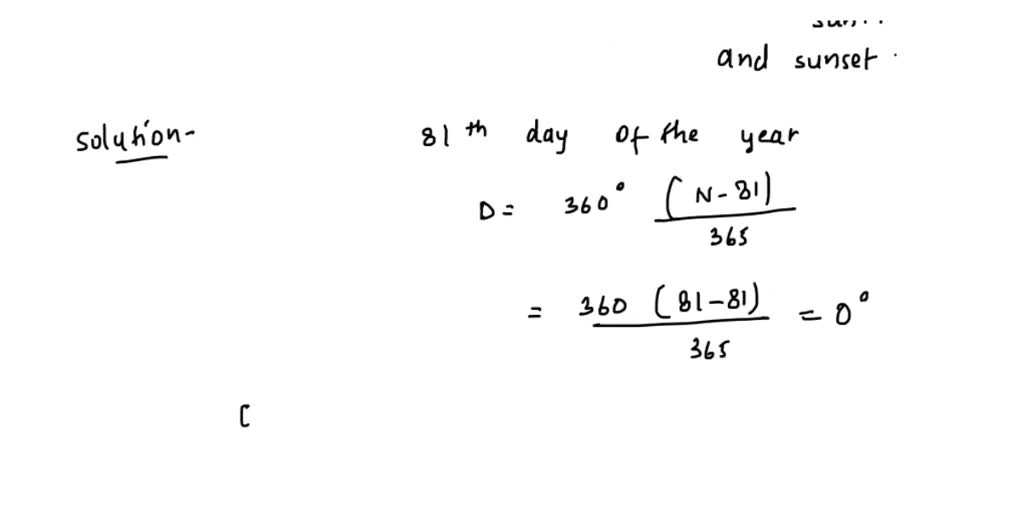 and sunset
solution-
81th day of the year
D= 360° (N-81)
365
= 360 (81-81) = 0°
365
[